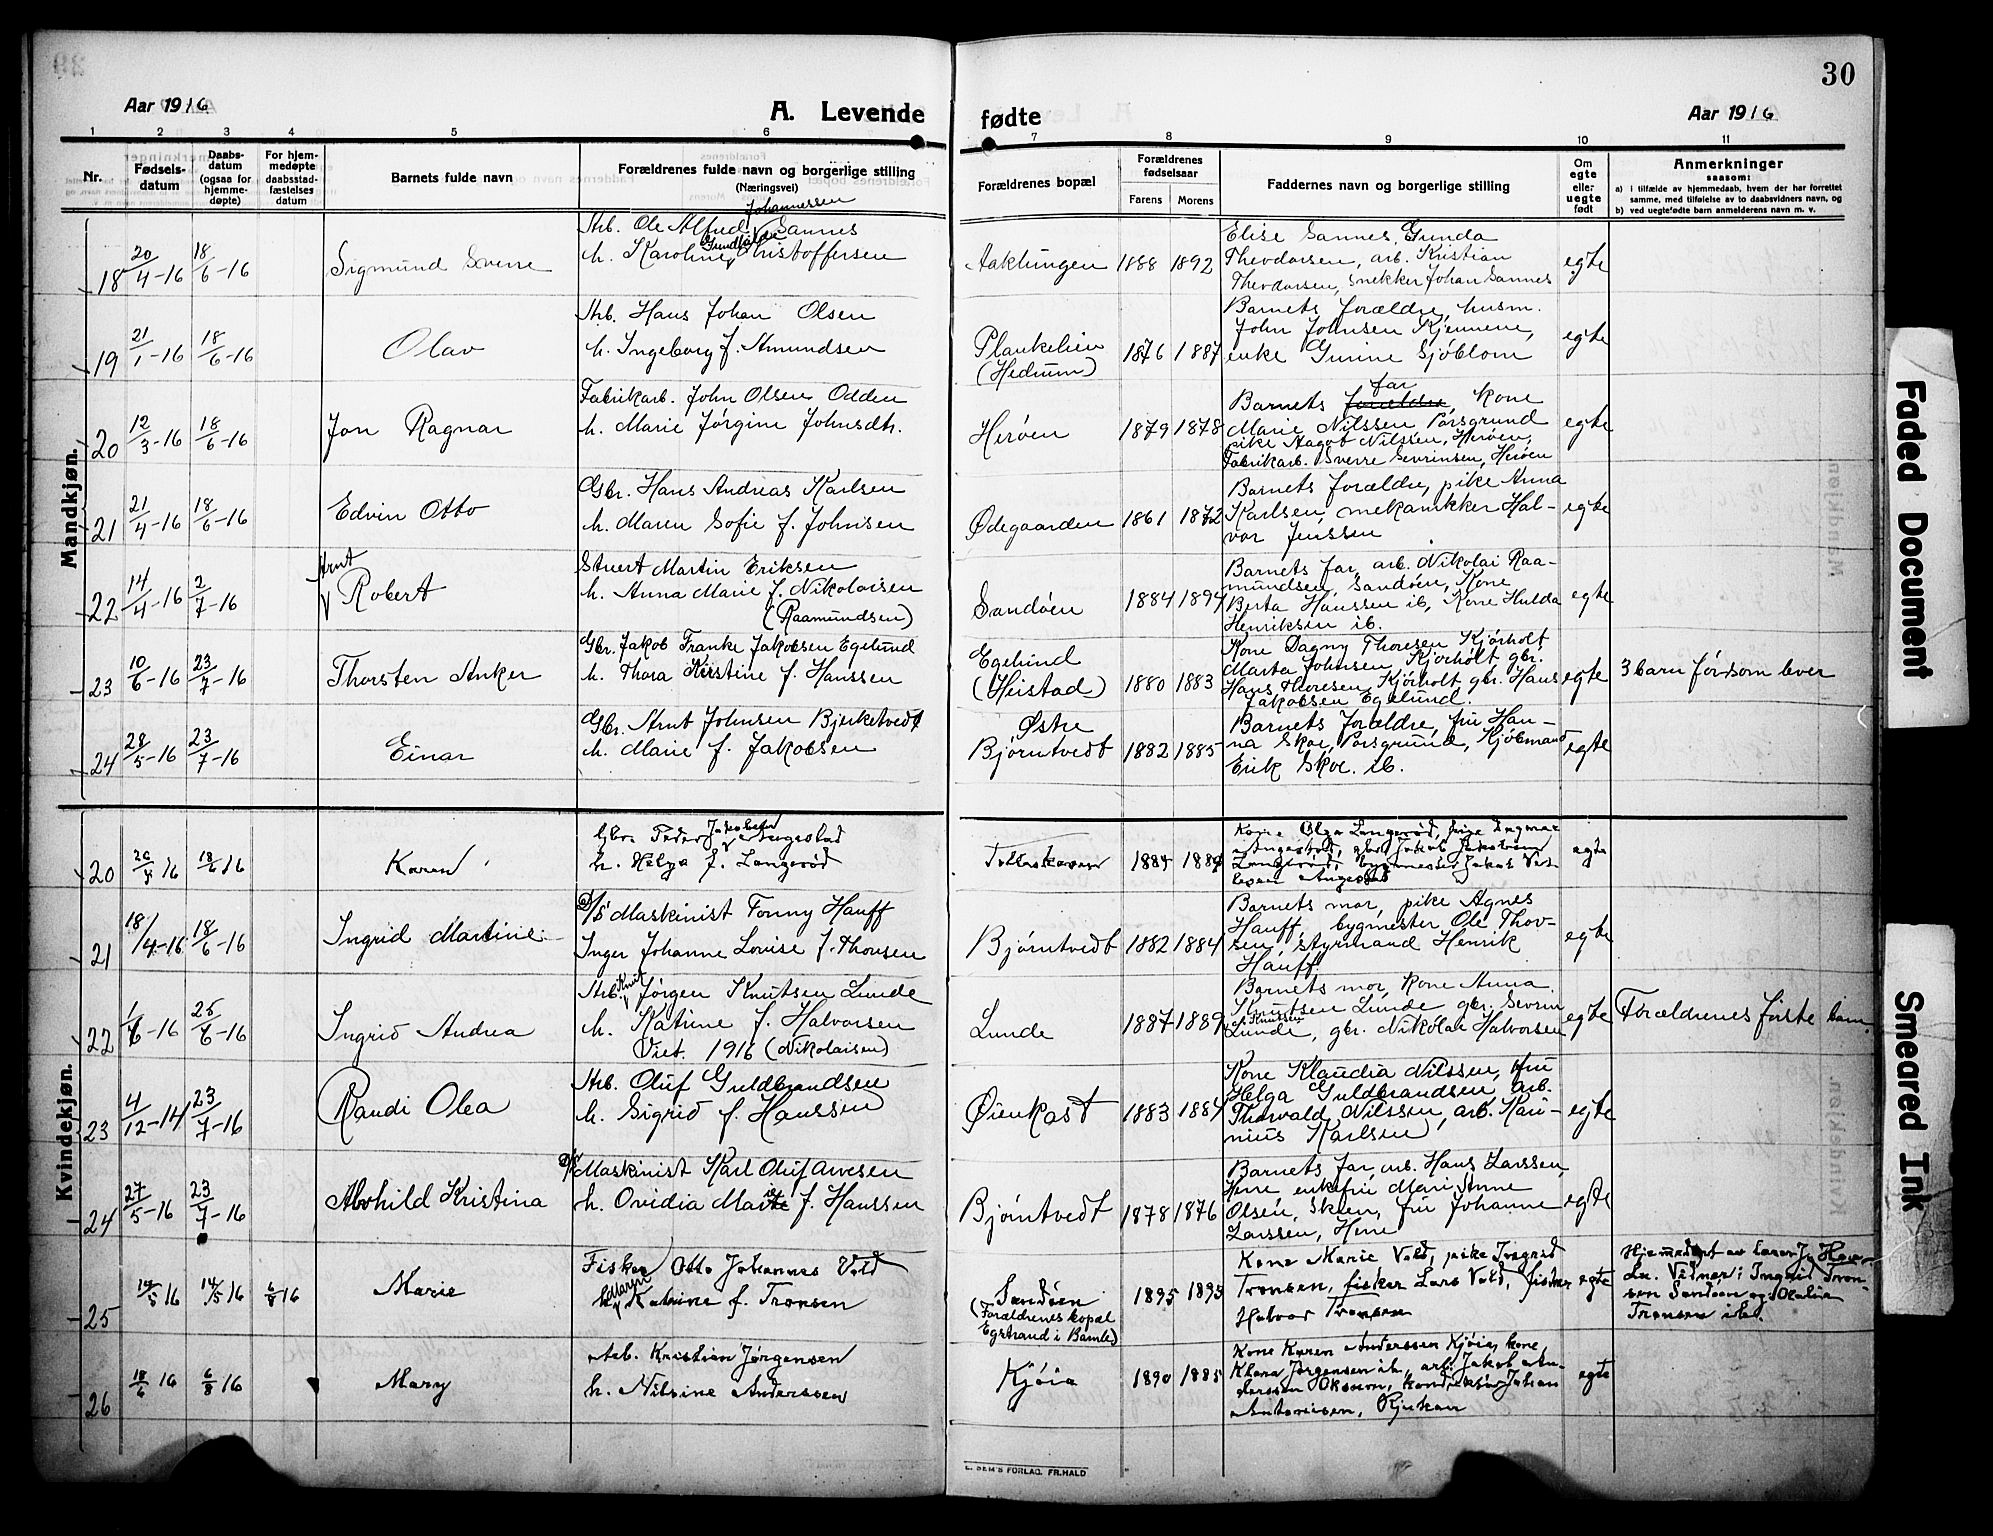 30
Aar 1916
A. Levende
fødte
Aar 1916
1 2 3 4 5 6 7 8 9 10 11
Nr.
Fødsels-
datum
Daabs-
datum
(ogsaa for
hjemme-
døpte)
For hjem-
medøpte
daabsstad-
fæstelses
datum
Barnets fulde navn
Forældrenes fulde navn og borgerlige stilling
(Næringsvei)
Forældrenes bopæl
Forældrenes
fødselsaar
Farens Morens
Faddernes navn og borgerlige stilling
Om
egte
eller
uegte
født
Anmerkninger
saasom:
a) i tilfælde av hjemmedaab, hvem der har forrettet
samme, med tilføielse av to daabsvidners navn, og
b) ved uegtefødte barn anmelderens navn m. v.
Mandkjøn.
18 20/4-16 18/6-16 Sigmund Sverre
Johannessen
Arb. Ole Alfred Sannes
Gundhilde
h. Karoline Kristoffersen
Aaklungen 1888 1892
Elise Sannes, Gunda
Theodorsen, arb. Kristian
Theodorsen, snekker Johan Sannes
egte
19 21/1-16 18/6-16 Olav
Arb. Hans Johan Olsen
h. Ingeborg f. Amundsen
Plankelien
(Hedrum)
1876 1887
Barnets forældre, husm.
John Johnsen Kjennene,
enke Gurine Sjöblom
egte
20 12/3-16 18/6-16 Jon Ragnar
Fabrikarb. John Olsen Odden
h. Marie Jørgine Johnsdh.
Herøen 1879 1878
far
Barnets forældre, kone
Marie Nilssen Porsgrund
pike Aagot Nilssen, Herøen,
Fabrikarb. Sverre Sevrinsen, Herøen
egte
21 21/4-16 18/6-16 Edvin Otto
Gbr. Hans Andreas Karlsen
h. Maren Sofie f. Johnsen
Ødegaarden 1861 1872
Barnets forældre, pike Anna
Karlsen, mekanikker Hal-
vor Jenssen
egte
22 14/4-16 2/7-16
Arnt
Robert
Stuert Martin Eriksen
h. Anna Marie f. Nikolaisen
(Raamundsen)
Sandøen 1884 1894
Barnets far, arb. Nikolai Raa-
mundsen, Sandøen, Kone
Berta Hanssen ib, Kone Hulda
Henriksen ib.
egte
23 10/6-16 23/7-16 Thorsten Anker
Gbr. Jakob Franke Jakobsen Egelund
h. Thora Kirstine f. Hanssen
Egelund
(Heistad)
1880 1883
Kone Dagny Thoresen Kjørholt
Marta Johnsen, Kjørholt gbr.
Hans Thoresen, Kjørholt gbr. Hans
Jakobsen Egelund.
egte
3 barn før som lever
24 28/5-16 23/7-16 Einar
Gbr. Arnt Johnsen Bjerketvedt
h. Marie f. Jakobsen
Østre
Bjørntvedt 1882 1885
Barnets forældre, fru Han-
na Skoe, Porsgrund, Kjøbmand
Erik Skoe. ib.
egte
Kvindekjøn.
20 18/6 16 Karen
Jakobsen
Gbr. Peder Angestad
h. Helga f. Langerød
1884
Kone Olga Langerød, pike Dagmar
Angestad, gbr. Jakob Jakobsen
Langerød, bygmester Jakob
Angestad
egte
21 18/4-16 18/6-16 Ingrid Martine
D/S Maskinist Fonny Hauff
Inger Johanne Lovise f. Thorsen
Bjørntvedt 1882 1884
Barnets mor, pike Agnes
Hauff, bygmester Ole Thor-
sen, styrmand Henrik
Hauff
egte
22 25/6-16 Ingrid Andrea
Knut
Arb. Jørgen Knutsen Lunde
h. Katrine f. Halvorsen
Viet. 1916 (Nikolaisen)
Lunde 1887 1889
Barnets mor, kone Anna
Knutsen Lunde gbr. Sevrin
Knutsen
Lunde, gbr. Nikolai Halvorsen
egte
Forældrenes første barn.
23 4/12-14 23/7-16 Randi Olea
Arb. Oluf Guldbrandsen
h. Sigrid f. Hanssen
Øienkast 1883 1884
Kone Klaudia Nilssen, fru
Helga Guldbrandsen arb.
Thorvald Nilssen, arb. Kari-
nius Karlsen
egte
24 27/5-16 23/7-16 Abohild Kristina
D/S Maskinist Karl Oluf Arvesen
h. Ovidia Marie f. Hanssen
Bjørntvedt 1878 1876
Barnets far, arb. Hans Larssen,
Herre enkefru Mari Anne
Olsen, Skien, fru Johanne
Larssen, Herre
egte
25 14/5 16 6/8 16 Marie
Fisker Otto Johannes Vold
Maren
h. Katrine f. Tronsen
Sandöen
(Forældrenes bopæl
Egstrand i Bamle)
1895 1893
Kone Marie Vold, pike Ingrid
Tronsen, fisker Lars Vold, fisker
Halvor Tronsen
egte
Hjemmedøpt av lærer J.
Vidner: Ingrid Tron-
sen Sandöen og
Tronsen ib.
26 18/6 16 6/8 16 Mary
Arb. Kristian Jørgensen
h. Nilsine Anderssen
Kjøia 1890 1885
Kone Karen Anderssen Kjöia, kone
Klara Jørgensen ib, arb. Jakob An-
derssen Oksum, konduktør Johan
Antonisen, Rjukan
egte
E. SEM'S FORLAG, FR.HALD
Faded Document
Smeared Ink